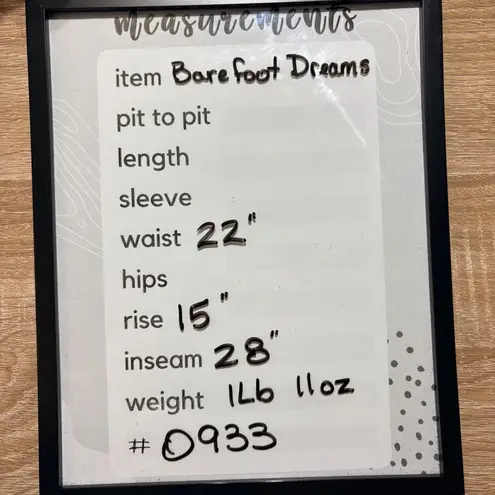 measurements
item Barefoot Dreams
pit to pit
length
sleeve
waist 22"
hips
rise 15"
inseam 28"
weight 1Lb 11oz
# 0933